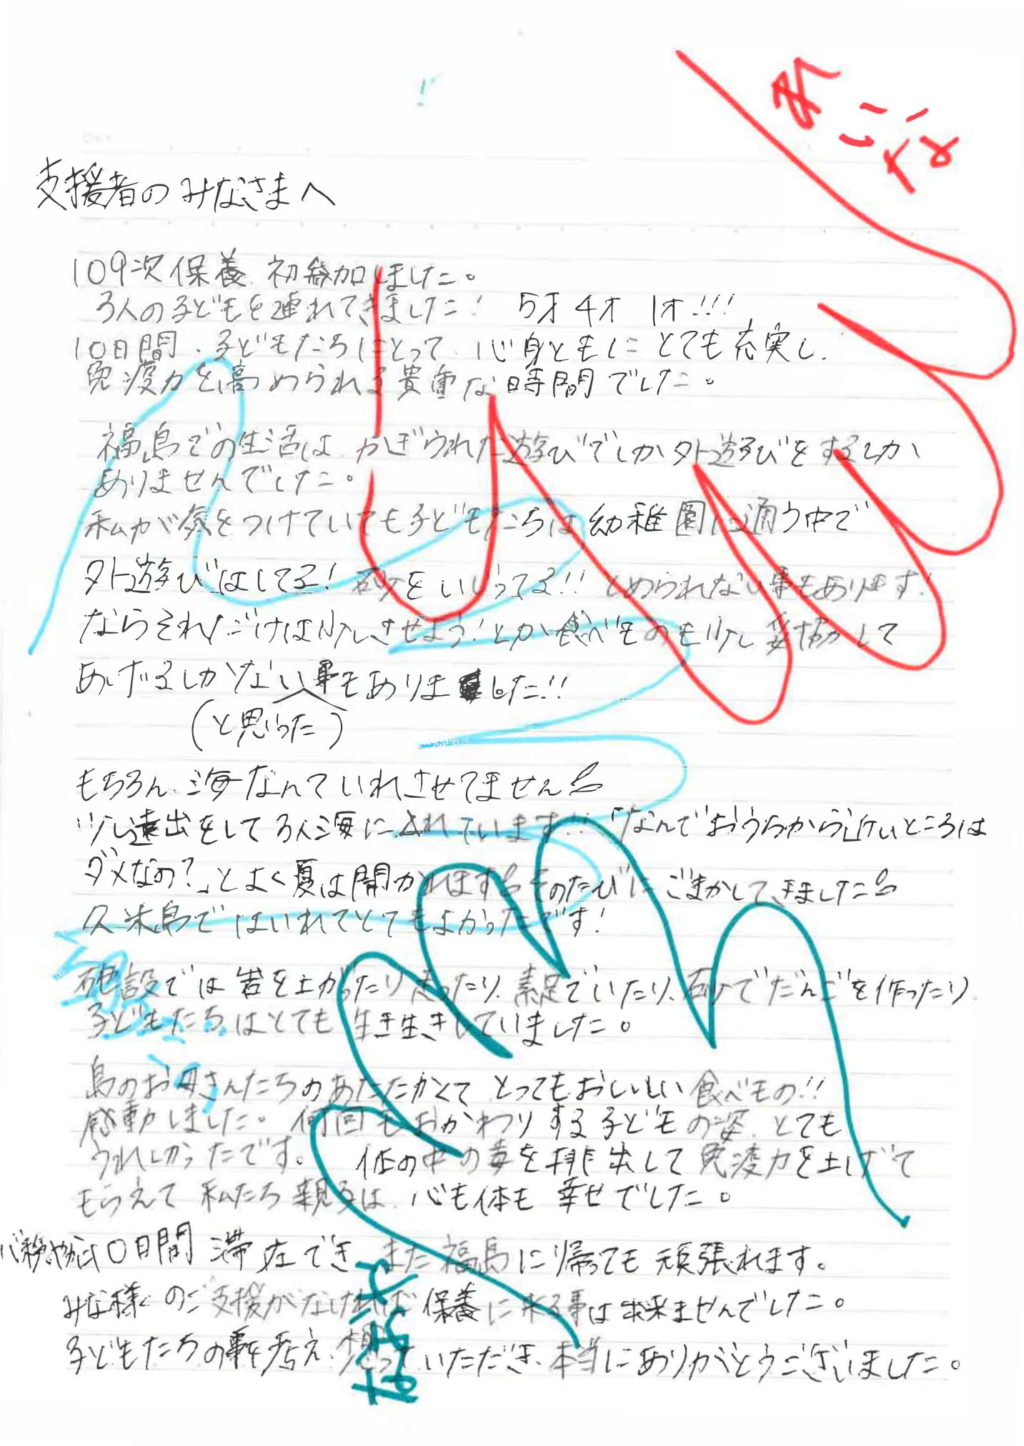 支援者のみなさまへ
109次保養 初参加しました。
3人の子どもを連れてきました！ 5才 4才 1才!!!
10日間、子どもたちにとって、心身ともに とても充実し、
免疫力を高められる貴重な時間でした。
福島での生活は かぎられた遊びでしか外遊びをするしか
ありませんでした。
私が気をつけていても子どもたちは幼稚園に通う中で
外遊びはしてる！ 砂をいじってる!! とめられない事もあります！
ならそれだけは少しさせよう！とか食べものも少し妥協して
あげるしかない事もありました!!
(と思った)
もちろん、海なんていれさせてません
少し遠出をして3人海に入れています!! 「なんでおうちから近いところは
ダメなの？」とよく夏は聞かれます そのたびにごまかしてきました
久米島ではいれてとてもよかったです！
施設では岩を上がったり走ったり、素足でいたり、砂でだんごを作ったり、
子どもたちはとても生き生きしていました。
島のお母さんたちのあたたかくて とってもおいしい食べもの!!
感動しました。何回もおかわりする子どもの姿、とても
うれしかったです。 体の中の毒を排出して免疫力を上げて
もらえて 私たち親子は、心も体も 幸せでした。
10日間 滞在でき、また福島に帰っても頑張れます。
みな様のご支援がなければ保養に来る事は出来ませんでした。
子どもたちの事を考え、想っていただき、本当にありがとうございました。